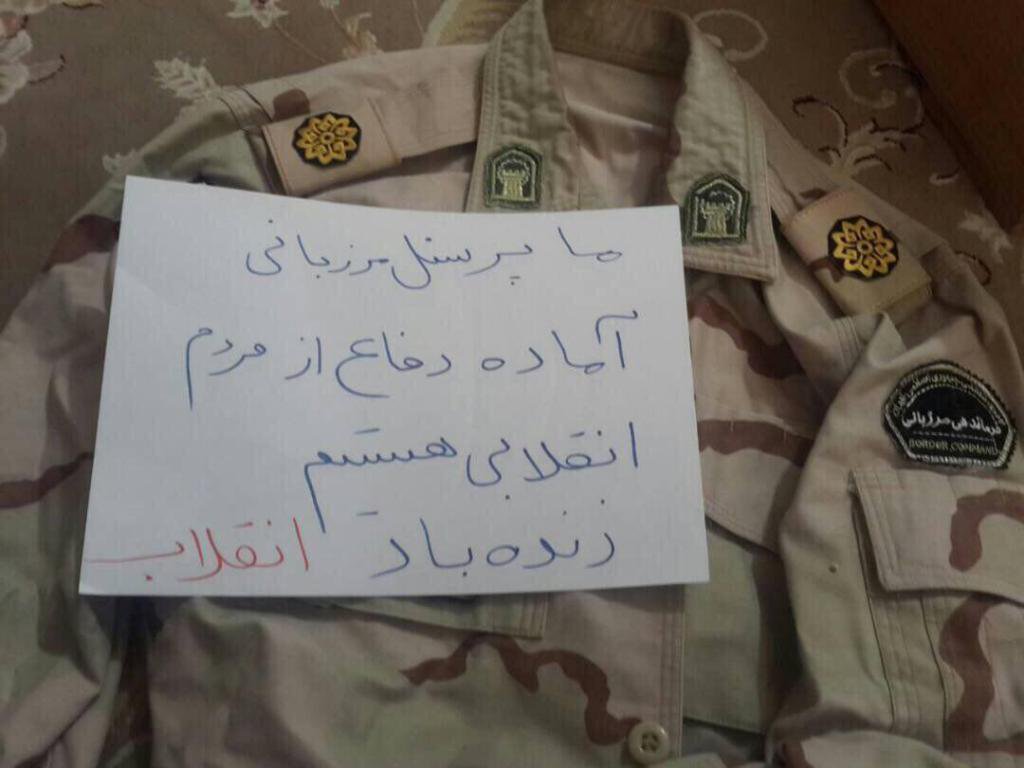 ما پرسنل مرزبانی
آماده دفاع از مردم
انقلابی هستیم
زنده باد انقلاب
فرماندهی مرزبانی
BORDER COMMAND